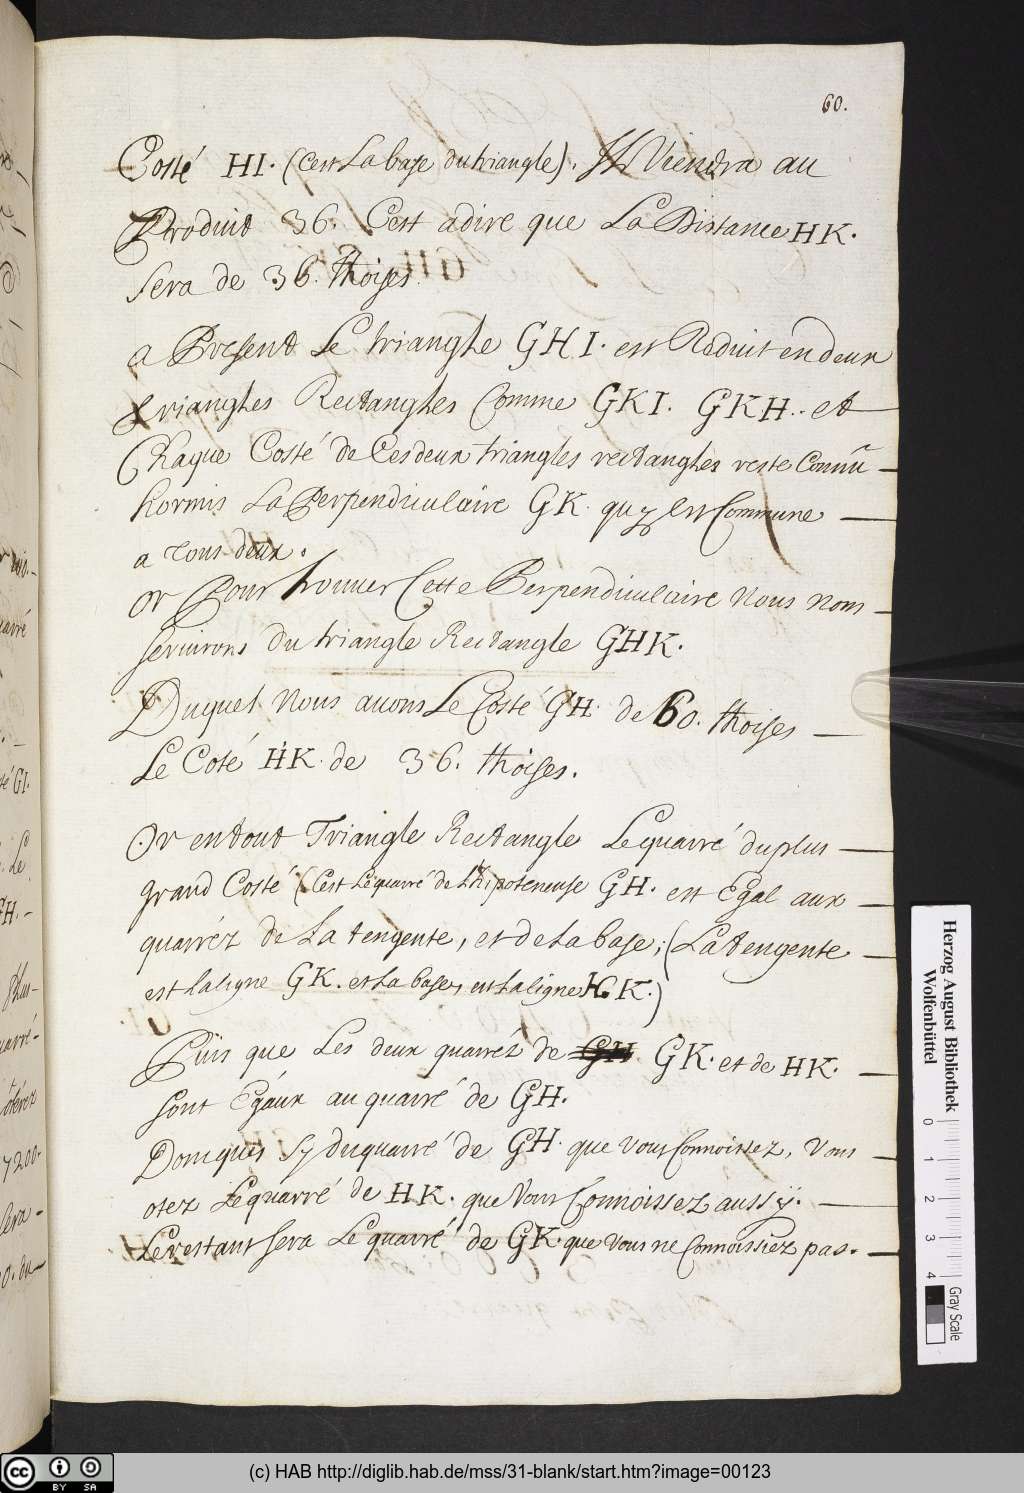 60.
Costé HI. (Cest La baze du triangle). IL Viendra au
Produit 36. Cest adire que La Distance HK.
Sera de 36. thoises.
a Present Le trianghe GHI. est Reduit en deux
trianghes Rectanghes Comme GKI. GKH.. et
Chaque Costé de Ces deux triangles rectanghes reste Connû
hormis La Perpendiculaire GK. quy est Commune
a tous deux.
or Pour trouuer Cette Perpendiculaire Nous nous
seruirons du triangle Rectangle GHK.
Duquel Nous auons Le Costé GH. de 60. thoises
Le Coté HK. de 36. thoises.
Or en tout Triangle Rectangle Le quarré du plus
grand Costé (Cest Le quarré de L'hipoteneuse GH. est Egal aux
quarréz de La tengente, et de La base; (La tengente
est La ligne GK. et La base, est La ligne HK.)
Puis que Les deux quarréz de GH GK. et de HK.
sont Egaux au quarré de GH.
Domques Sy du quarré de GH. que vous Connoissez, Vous
otez Le quarré de HK. que Vous Connoissez aussÿ.
Le restant sera Le quarré de GK. que Vous ne Connoissiez pas.
7200.
té GI.
Le
GH.
plus
quarré
Sera
0. du
Herzog August Bibliothek
Wolfenbüttel
0 1 2 3 4
Gray Scale
cc BY SA
(c) HAB http://diglib.hab.de/mss/31-blank/start.htm?image=00123